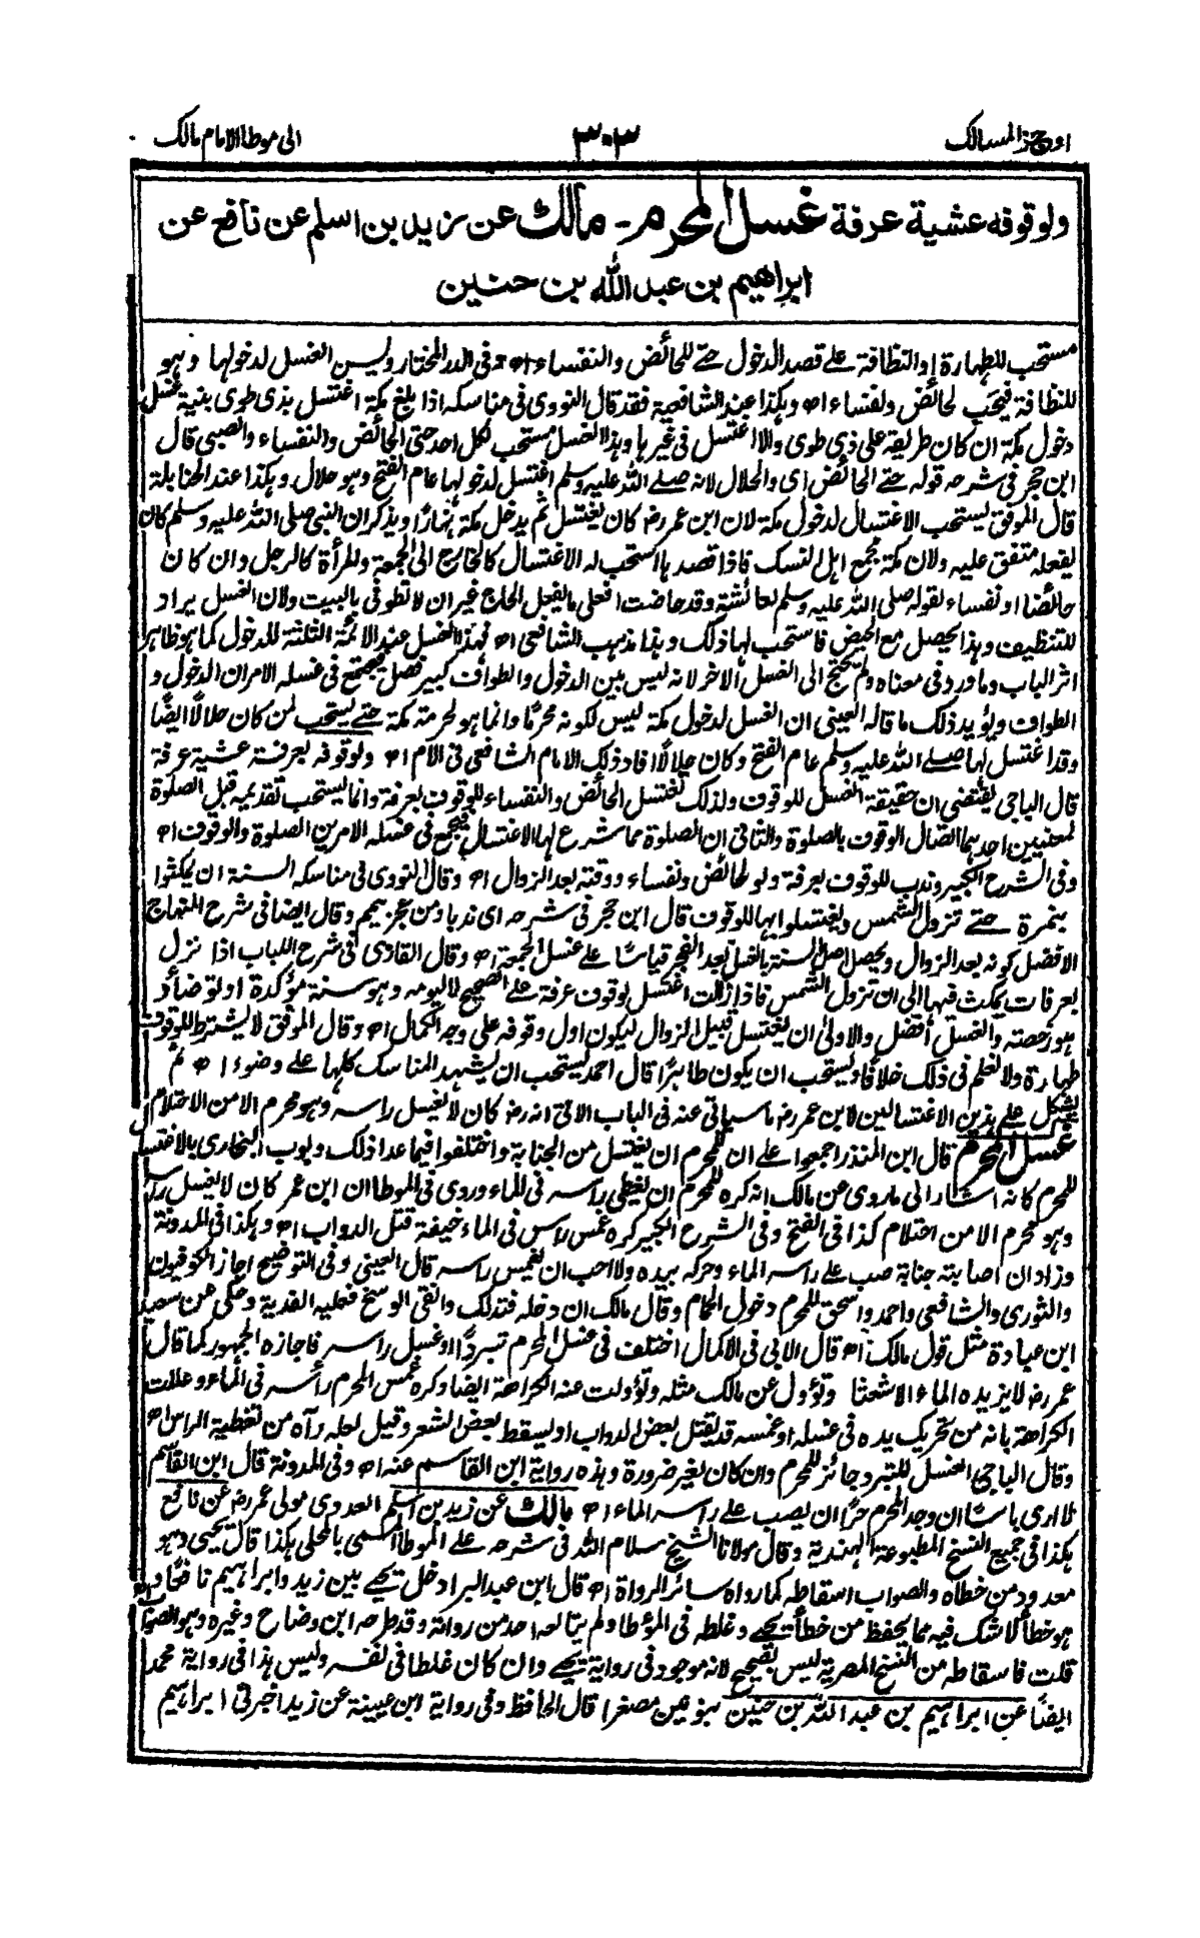 اوجز المسالك ٣٠٣ الى موطا الامام مالك
ولوقوفه عشية عرفة غسل المحرم - مالك عن زيد بن اسلم عن نافع عن
ابراهيم بن عبد الله بن حنين
مستحب للطهارة او النظافة على قصد الدخول حتى للحائض والنفساء اھ وفى الدر المختار وليس الغسل لدخولها وهو
للنظافة فيحب لحائض ونفساء اھ وهكذا عند الشافعية فقد قال النووى فى مناسكه اذا بلغ مكة اغتسل بذى طوى بنية غسل
دخول مكة ان كان طريقه على ذى طوى والا اغتسل فى غيرها وهذا الغسل مستحب لكل احد حتى الحائض والنفساء والصبى قال
ابن حجر فى شرحه قوله حتى الحائض اى والحلال لانه صلى الله عليه وسلم اغتسل لدخولها عام الفتح وهو حلال وهكذا عند الحنابلة
قال الموفق يستحب الاغتسال لدخول مكة لان ابن عمر رض كان يغتسل ثم يدخل مكة نهارًا ويذكر ان النبى صلى الله عليه وسلم كان
يفعله متفق عليه ولان مكة مجمع اهل النسك فاذا قصدها استحب له الاغتسال كالخارج الى الجمعة والمرأة كالرجل وان كان
حائضا او نفساء لقوله صلى الله عليه وسلم لعائشة وقد حاضت افعلى ما يفعل الحاج غير ان لا تطوفى بالبيت ولان الغسل يراد
للتنظيف وهذا يحصل مع الحيض فاستحب لها ذلك وهذا مذهب الشافعى اھ فهذا الغسل عند الائمة الثلثة للدخول كما هو ظاهر
اثر الباب وما ورد فى معناه ولم يحتج الى الغسل الاخر لانه ليس بين الدخول والطواف كبير فصل فيجتمع فى غسله الامران الدخول و
الطواف ويؤيد ذلك ما قاله العينى ان الغسل لدخول مكة ليس لكونه محرمًا وانما هو لحرمة مكة حتى يستحب لمن كان حلالًا ايضًا
وقد اغتسل لها صلى الله عليه وسلم عام الفتح وكان حلالًا افاد ذلك الامام الشافعى فى الام اھ ولوقوفه بعرفة عشية عرفة
قال الباجى يقتضى ان حقيقة الغسل للوقوف ولذلك تغتسل الحائض والنفساء للوقوف بعرفة وانما يستحب تقديمه قبل الصلوة
لمعنيين احدهما اتصال الوقوف بالصلوة والثانى ان الصلوة مما شرع لها الاغتسال فيجمع فى غسله الامرين الصلوة والوقوف اھ
وفى الشرح الكبير وندب للوقوف بعرفة ولو لحائض ونفساء ووقته بعد الزوال اھ وقال النووى فى مناسكه السنة ان يمكثوا
بنمرة حتى تزول الشمس ويغتسلوا بها للوقوف قال ابن حجر فى شرحه اى ندبا ومن عجز تيمم وقال ايضا فى شرح المنهاج
الافضل كونه بعد الزوال ويحصل اصل السنة بالغسل بعد الفجر قياسًا على غسل الجمعة اھ وقال القارى فى شرح اللباب اذا نزل
بعرفات يمكث فيها الى ان تزول الشمس فاذا زالت اغتسل لوقوف عرفة على الصحيح لا ليومه وهو سنة مؤكدة او توضأ و
هو رخصة والغسل أفضل والاولى ان يغتسل قبيل الزوال ليكون اول وقوفه على وجه الكمال اھ وقال الموفق لا يشترط للوقوف
طهارة ولا نعلم فى ذلك خلافا ويستحب ان يكون طاهرًا قال احمد يستحب ان يشهد المناسك كلها على وضوء اھ ثم
يشكل على هذين الاغتسالين لابن عمر رض ما سياتى عنه فى الباب الاتى انه رض كان لا يغسل راسه وهو محرم الا من الاحتلام
غسل المحرم قال ابن المنذر اجمعوا على ان للمحرم ان يغتسل من الجنابة واختلفوا فيما عدا ذلك وبوب البخارى بالاغتسال
للمحرم كانه اشار الى ما روى عن مالك انه كره للمحرم ان يغطى راسه فى الماء وروى فى الموطا ان ابن عمر كان لا يغسل راسه
وهو محرم الا من احتلام كذا فى الفتح وفى الشرح الكبير كره غمس راس فى الماء خيفة قتل الدواب اھ وهكذا فى المدونة
وزاد ان اصابته جنابة صب على راسه الماء وحركه بيده ولا احب ان يغمس راسه قال العينى وفى التوضيح اجاز الكوفيون
والثورى والشافعى واحمد واسحق للمحرم دخول الحمام وقال مالك ان دخله فتدلك وانقى الوسخ فعليه الفدية وحكى عن سعيد
ابن عبادة مثل قول مالك اھ قال الابى فى الاكمال اختلف فى غسل المحرم تبردًا او غسل راسه فاجازه الجمهور كما قال
عمر رض لا يزيده الماء الا شعثا وتؤول عن مالك مثله وتؤولت عنه الكراهة ايضا وكره غمس المحرم رأسه فى الماء وعللت
الكراهة بانه من تحريك يده فى غسله او غمسه قد يقتل بعض الدواب او يسقط بعض الشعر وقيل لعله رآه من تغطية الراس اھ
وقال الباجى الغسل للتبرد جائز للمحرم وان كان لغير ضرورة وهذه رواية ابن القاسم عنه اھ وفى المدونة قال ابن القاسم
لا ارى باسًا ان وجد المحرم حرًا ان يصب على راسه الماء اھ مالك عن زيد بن اسلم العدوى مولى عمر رض عن نافع
هكذا فى جميع النسخ المطبوعة الهندية وقال مولانا الشيخ سلام الله فى شرحه على الموطا المسمى بالمحلى هكذا قال يحيى وهو
معدود من خطاه والصواب اسقاطه كما رواه سائر الرواة اھ قال ابن عبد البر ادخل يحيى بين زيد وابراهيم نافعًا و
هو خطأ لا شك فيه مما يحفظ من خطأ يحيى وغلطه فى المؤطا ولم يتابعه احد من رواته وقد طرحه ابن وضاح وغيره وهو الصواب
قلت فاسقاطه من النسخ المصرية ليس بصحيح لانه موجود فى رواية يحيى وان كان غلطا فى نفسه وليس هذا فى رواية محمد
ايضًا عن ابراهيم بن عبد الله بن حنين بنونين مصغرا قال الحافظ وفى رواية ابن عيينة عن زيد اخبرنى ابراهيم